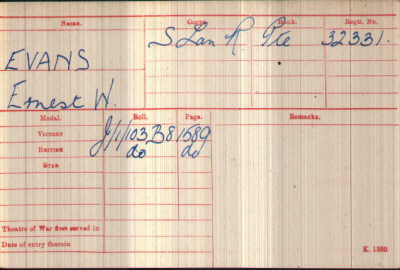 Name. Corps. Rank. Regtl. No.
S Lan R. Pte 32331.
EVANS
Ernest W.
Medal. Roll. Page. Remarks.
VICTORY J/1/103 B8 1589
BRITISH do do
STAR
Theatre of War first served in
Date of entry therein
K. 1380